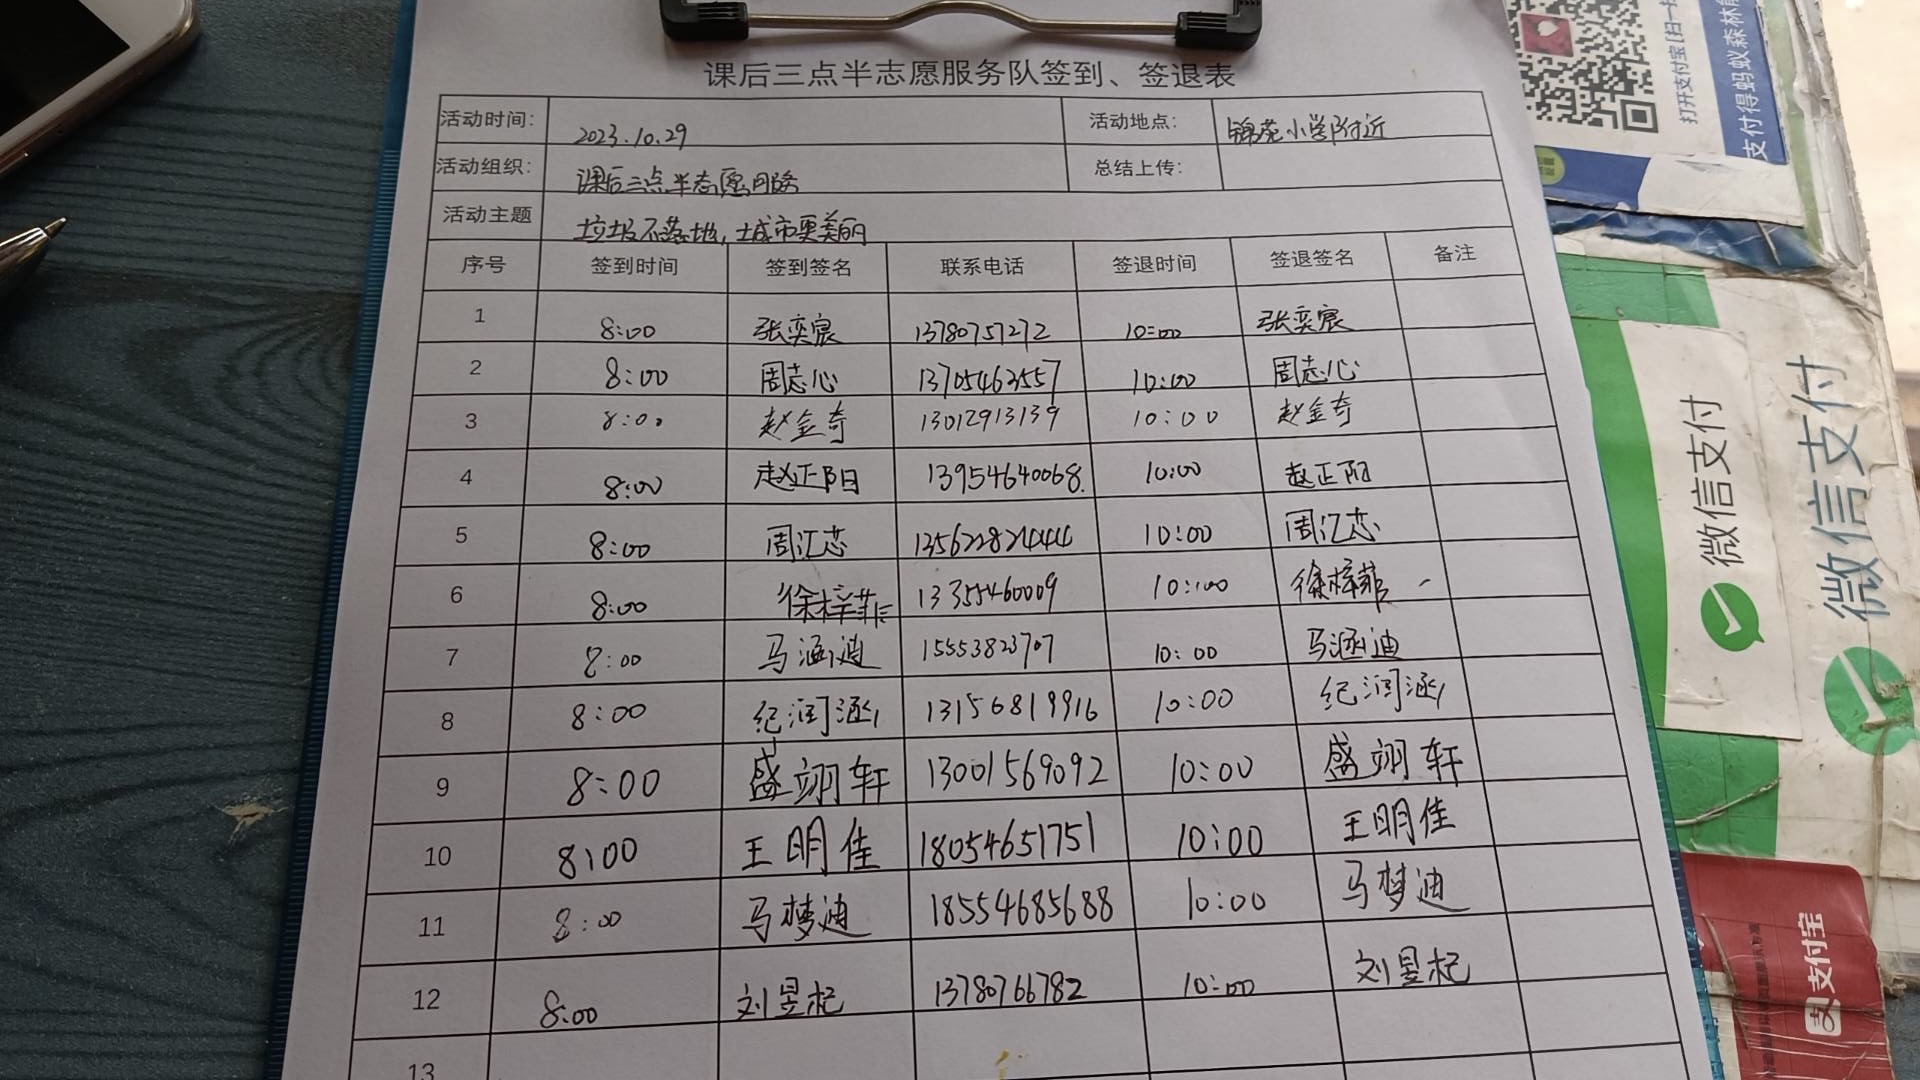 课后三点半志愿服务队签到、签退表
活动时间: 2023.10.29 活动地点: 锦苑小学附近
活动组织: 课后三点半志愿服务 总结上传:
活动主题 垃圾不落地,城市更美丽
序号 签到时间 签到签名 联系电话 签退时间 签退签名 备注
1 8:00 张奕宸 13780757272 10:00 张奕宸
2 8:00 周志心 13705463557 10:00 周志心
3 8:00 赵金奇 13012913139 10:00 赵金奇
4 8:00 赵正阳 13954640068. 10:00 赵正阳
5 8:00 周汇芯 13562282444 10:00 周汇芯
6 8:00 徐梓菲 13355460009 10:00 徐梓菲
7 8:00 马涵迪 15553823707 10:00 马涵迪
8 8:00 纪润涵 13156819916 10:00 纪润涵
9 8:00 盛翊轩 13001569092 10:00 盛翊轩
10 8:00 王明佳 18054651751 10:00 王明佳
11 8:00 马梦迪 18554685688 10:00 马梦迪
12 8:00 刘昱杞 13780766782 10:00 刘昱杞
13
打开支付宝[扫一扫]
支付得蚂蚁森林能
微信支付
微信支付
支付宝